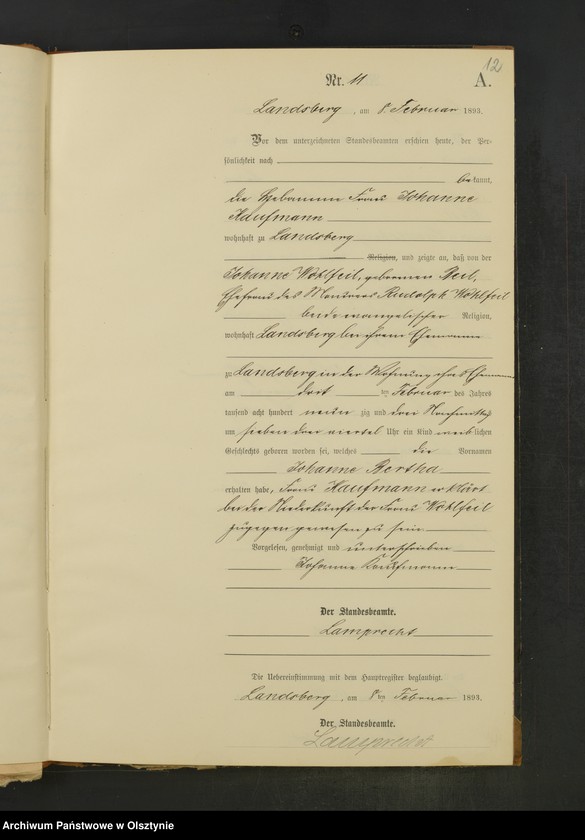 12
Nr. 11 A.
Landsberg, am 8. Februar 1893.
Vor dem unterzeichneten Standesbeamten erschien heute, der Per-
sönlichkeit nach
bekannt,
die Hebamme Frau Johanne
Kaufmann
wohnhaft zu Landsberg
Religion, und zeigte an, daß von der
Johanne Wohlfeil, geborenen Beil,
Ehefrau des Maurers Rudolph Wohlfeil
beide evangelischer Religion,
wohnhaft Landsberg bei ihrem Ehemanne
zu Landsberg in der Wohnung ihres Ehemannes
am ten Februar des Jahres
tausend acht hundert neun zig und drei Nachmittag
um sieben drei viertel Uhr ein Kind weiblichen
Geschlechts geboren worden sei, welches die Vornamen
Johanne Bertha
erhalten habe, Frau Kaufmann erklärt
bei der Niederkunft der Frau Wohlfeil
zugegen gewesen zu sein
Vorgelesen, genehmigt und unterschrieben
Johanne Kaufmann
Der Standesbeamte.
Lamprecht
Die Uebereinstimmung mit dem Hauptregister beglaubigt.
Landsberg, am 8ten Februar 1893.
Der Standesbeamte.
Lamprecht
Archiwum Państwowe w Olsztynie